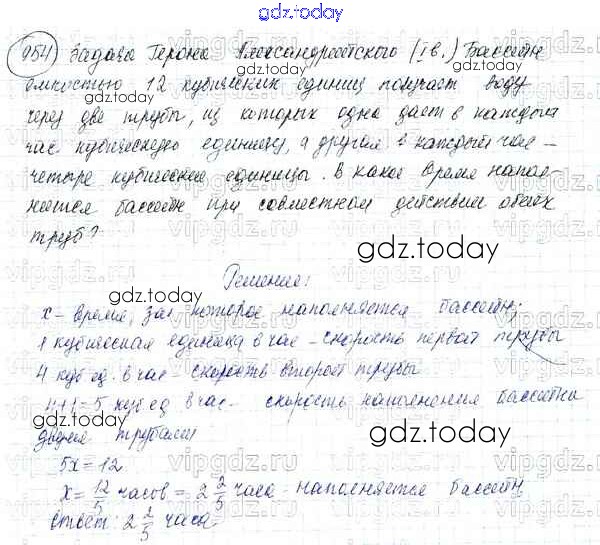 gdz.today
954) Задача Герона Александрийского (I в.) Бассейн
емкостью 12 кубических единиц получает воду
через две трубы, из которых одна дает в каждый
час кубическую единицу, а другая в каждый час –
четыре кубические единицы. В какое время напол-
няется бассейн при совместном действии обеих
труб?
gdz.today
Решение:
x – время, за которое наполняется бассейн;
1 кубическая единица в час – скорость первой трубы
4 куб ед. в час – скорость второй трубы
4+1=5 куб ед в час – скорость наполнения бассейна
двумя трубами
5x = 12
x = 12/5 часов = 2 2/5 часа – наполняется бассейн
ответ: 2 2/5 часа.